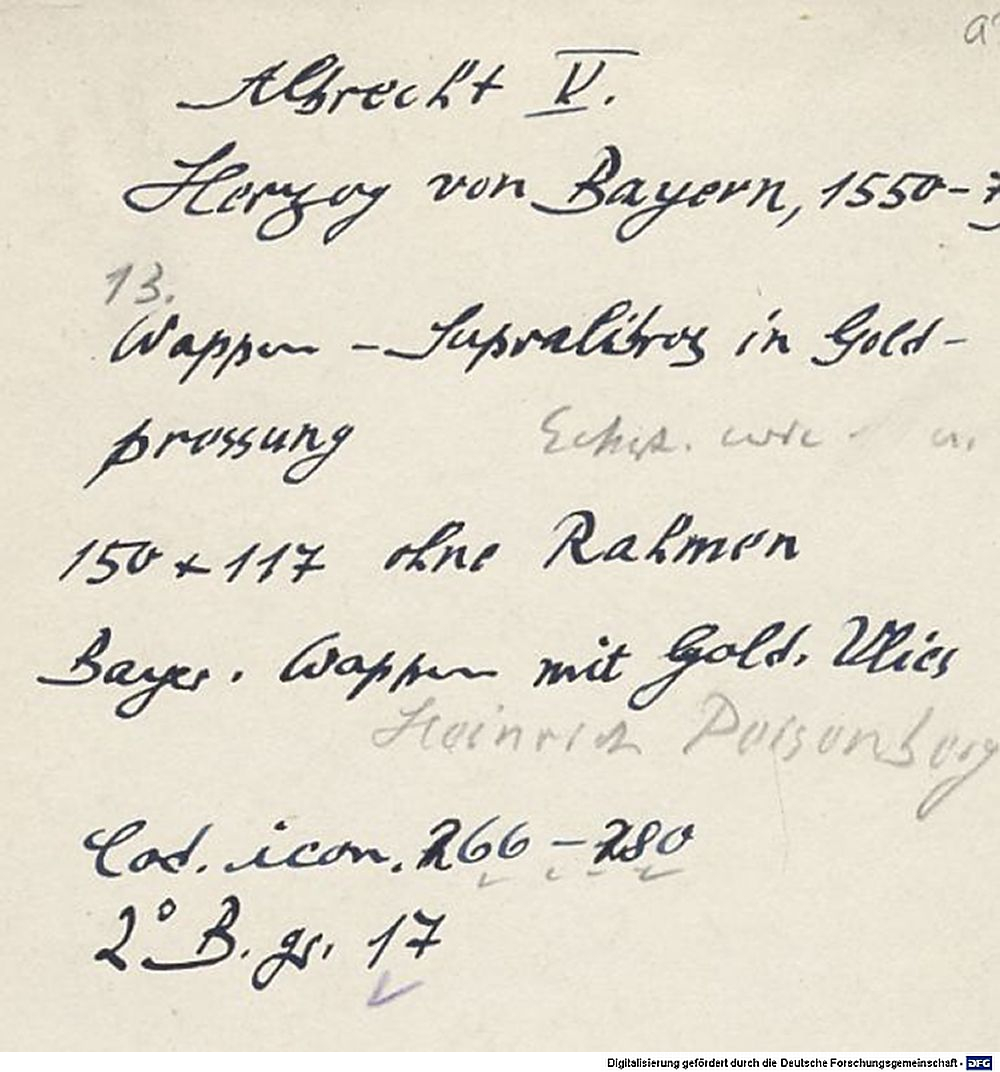 Albrecht V.
Herzog von Bayern, 1550-7
13.
Wappen - Supralibros in Gold-
pressung wie
150 x 117 ohne Rahmen
Bayer. Wappen mit Gold. Vlies
Heinrich Peisenberg
Cod. icon. 266-280
2° B. gr. 17
Digitalisierung gefördert durch die Deutsche Forschungsgemeinschaft - DFG